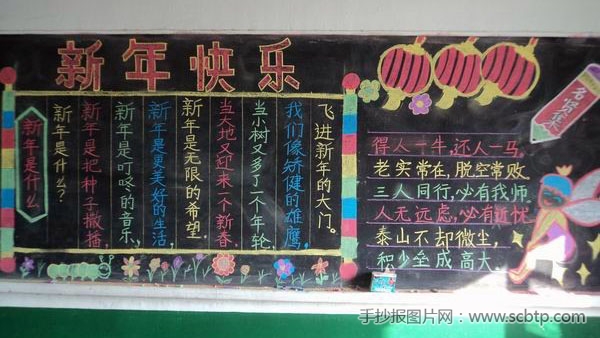 新年快乐
新年是什么
新年是什么?
新年是把种子撒播,
新年是叮咚的音乐,
新年是更美好的生活,
新年是无限的希望.
当大地又迎来一个新春,
当小树又多了一个年轮,
我们像矫健的雄鹰,
飞进新年的大门。
名贤集
得人一牛,还人一马.
老实常在,脱空常败.
三人同行,必有我师.
人无远虑,必有近忧
泰山不却微尘,
积少垒成高大.
手抄报图片网:www.scbtp.com